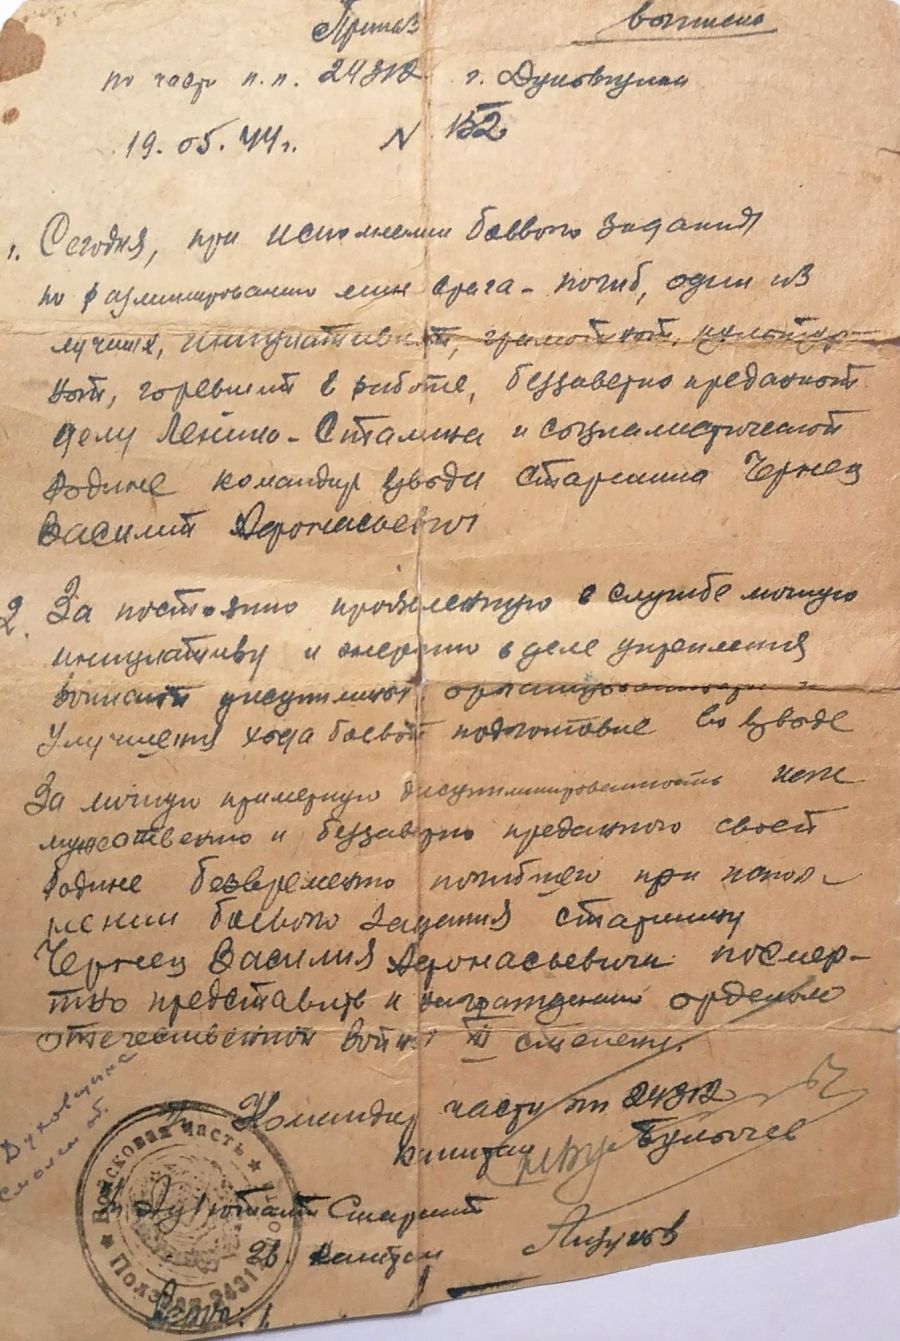 Приказ выписка
по части п.п. 24312 г. Духовщина
19.05.44 г. N 152
1. Сегодня, при исполнении боевого задания
по разминированию мин врага - погиб, один из
лучших, инициативный, грамотный, культур-
ный, горевший в работе, беззаветно преданный
делу Ленина - Сталина и социалистической
родине командир взвода старшина Чернец
Василий Афонасьевич
2. За постоянно проявленную в службе личную
инициативу и энергию в деле укрепления
воинской дисциплины организованности и
улучшения хода боевой подготовке во взводе
За личную примерную дисциплинированность
мужественно и беззаветно преданного своей
Родине безвременно погибшего при испол-
нении боевого задания старшину
Чернец Василия Афонасьевича посмер-
тно представить к награждению орденом
отечественной войны II степени.
Командир части пп 24312
капитан Булычев
Духовщина
Смолен об.
Адъютант Старший
капитан
Войсковая часть
Полевая 24312